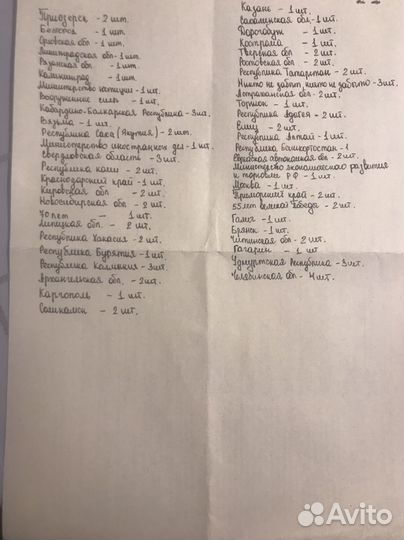 Приозерск - 2 шт.
Белгорск - 1 шт.
Орловская обл - 1 шт.
Ленинградская обл - 1 шт.
Рязанская обл - 1 шт.
Калининград - 1 шт.
Министерство юстиции - 1 шт.
Вооруженные силы - 1 шт.
Кабардино-Балкарская Республика - 3 шт.
Вязьма - 1 шт.
Республика Саха (Якутия) - 2 шт.
Министерство иностранных дел - 1 шт.
Свердловская область - 3 шт.
Республика коми - 2 шт.
Краснодарский край - 1 шт.
Кировская обл - 2 шт.
Новосибирская обл - 2 шт.
70 лет - 1 шт.
Липецкая обл. - 2 шт.
Республика Хакасия - 2 шт.
Республика Бурятия - 1 шт.
Республика Калмыкия - 3 шт.
Архангельская обл. - 2 шт.
Каргополь - 1 шт.
Соликамск - 2 шт.
Казань - 1 шт.
Сахалинская обл - 1 шт.
Дорогобуж - 1 шт.
Кострома - 1 шт.
Тверская обл - 2 шт.
Ростовская обл - 2 шт.
Республика Татарстан - 2 шт.
Никто не забыт, ничто не забыто - 3 шт.
Астраханская обл - 2 шт.
Торжок - 1 шт.
Республика Адыгея - 2 шт.
Елец - 2 шт.
Республика Алтай - 1 шт.
Республика Башкортостан - 1
Еврейская автономная обл. - 2 шт.
Министерство экономического развития
и торговли РФ - 1 шт.
Москва - 1 шт.
Приморский край - 2 шт.
55 лет великой победы - 2 шт.
Галич - 1 шт.
Брянск - 1 шт.
Читинская обл - 2 шт.
Гагарин - 1 шт
Удмуртская Республика - 3 шт.
Челябинская обл - 4 шт.
Avito